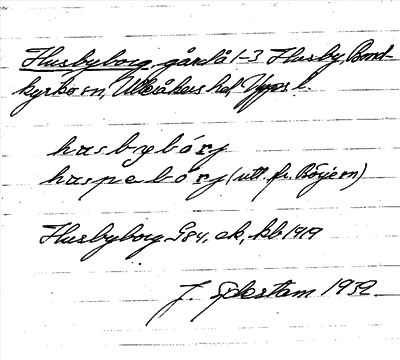 Husbyborg, gård å 1-3 Husby, Bond-
kyrko sn, Ulleråkers hd, Upps. l.
husbybórj
huspebórj (utt. fr. Börje sn)
Husbyborg G 84, ek, kb 1919
J. 1939